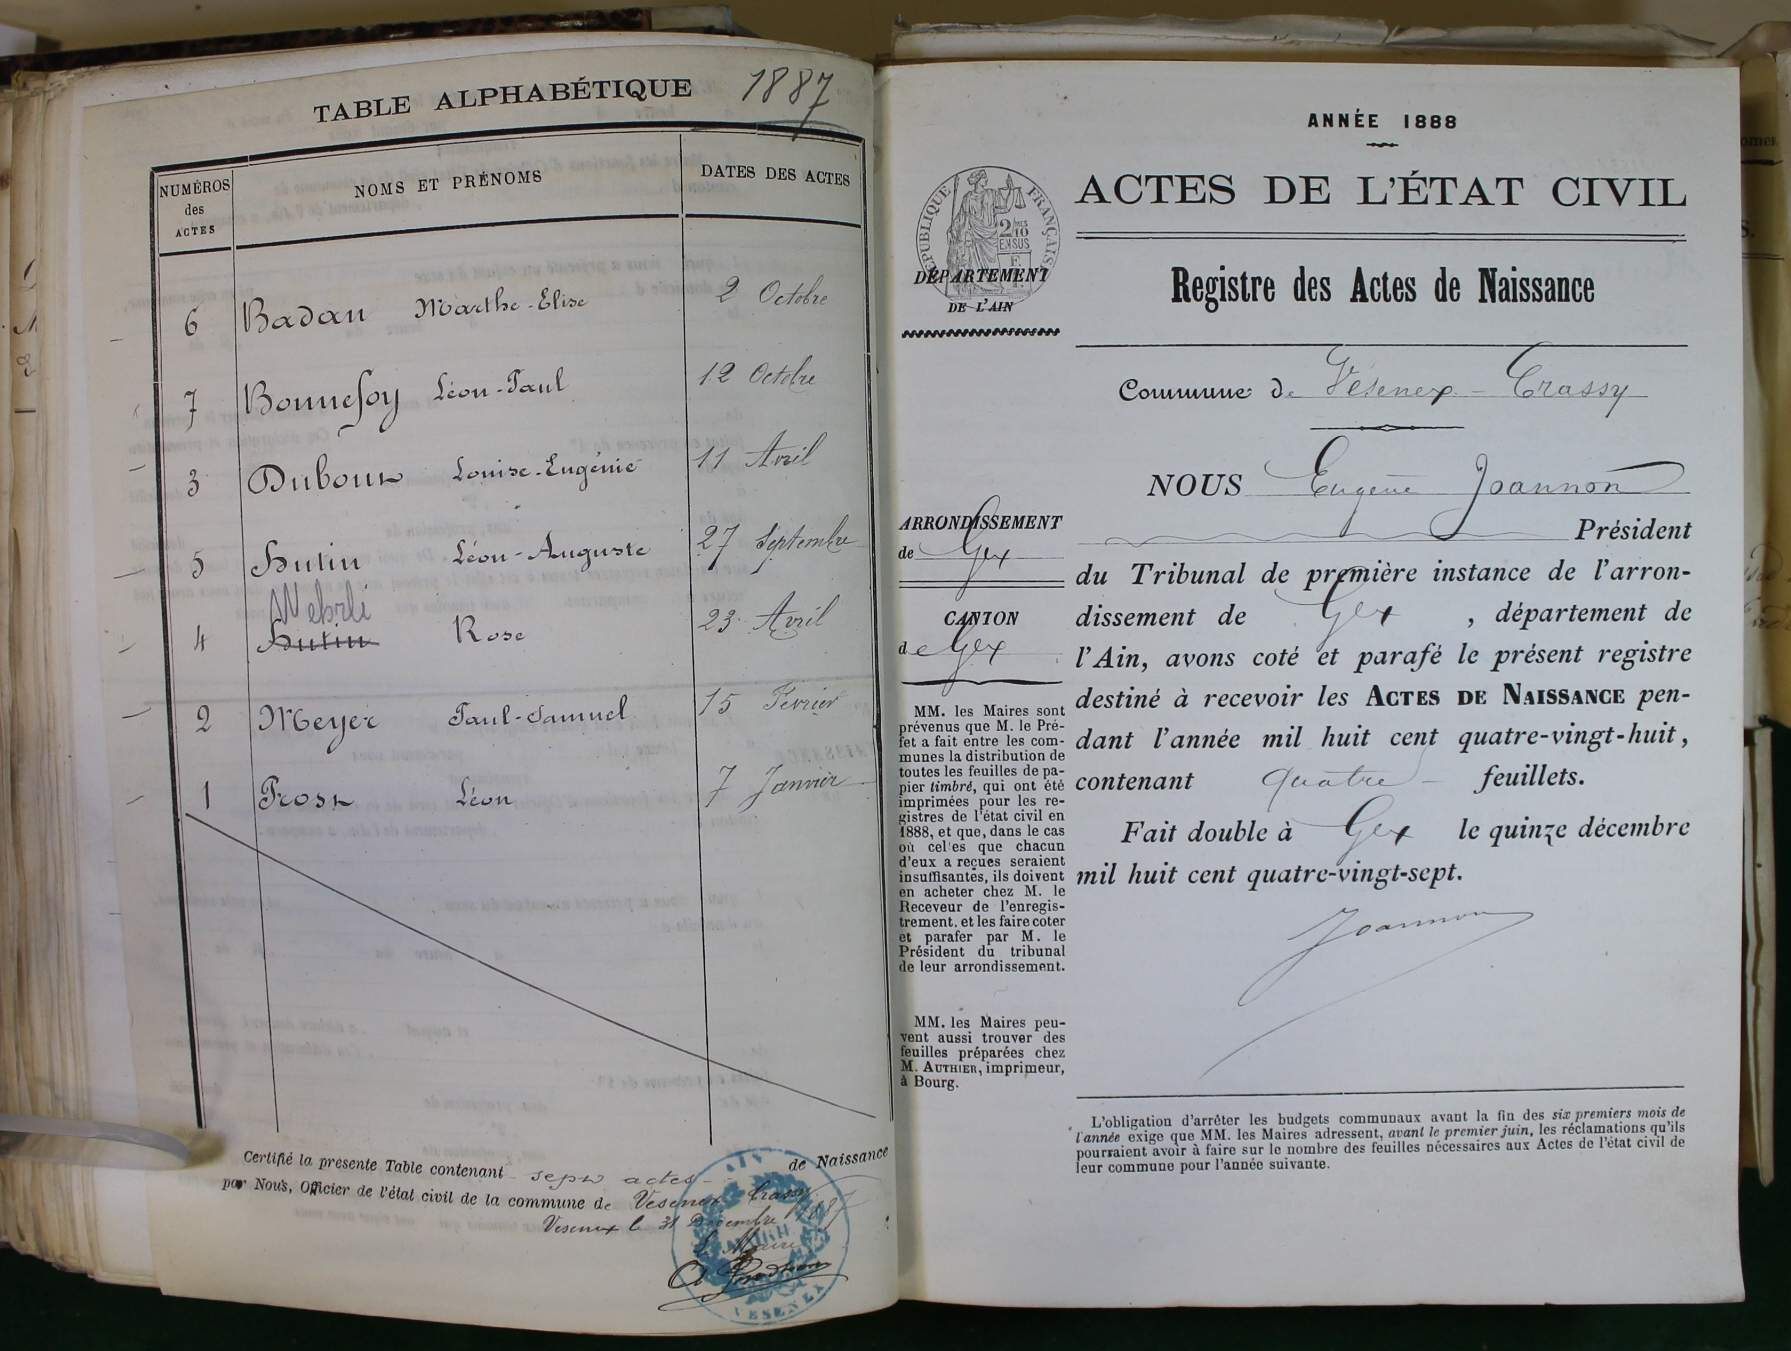 TABLE ALPHABÉTIQUE 1887
NUMÉROS des ACTES
NOMS ET PRÉNOMS
DATES DES ACTES
6 Badan Marthe-Elise 2 Octobre
7 Bonnefoy Léon-Paul 12 Octobre
3 Duboux Louise-Eugénie 11 Avril
5 Hutin Léon-Auguste 27 Septembre
Wehrli
4 Hutin Rose 23 Avril
2 Meyer Paul-Samuel 15 Février
1 Prost Léon 7 Janvier
Certifié la présente Table contenant sept actes de Naissance
par Nous, Officier de l'état civil de la commune de Vesenex Crassy
Vesenex le 31 Décembre 1887
Le Maire
AIN
MAIRIE
VESENEX
ANNÉE 1888
RÉPUBLIQUE FRANÇAISE
2/10 EN SUS
DÉPARTEMENT
DE L'AIN
ACTES DE L'ÉTAT CIVIL
Registre des Actes de Naissance
Commune de Vésenex-Crassy
ARRONDISSEMENT
de Gex
CANTON
de Gex
MM. les Maires sont
prévenus que M. le Pré-
fet a fait entre les com-
munes la distribution de
toutes les feuilles de pa-
pier timbré, qui ont été
imprimées pour les re-
gistres de l'état civil en
1888, et que, dans le cas
où celles que chacun
d'eux a reçues seraient
insuffisantes, ils doivent
en acheter chez M. le
Receveur de l'enregis-
trement, et les faire coter
et parafer par M. le
Président du tribunal
de leur arrondissement.
MM. les Maires peu-
vent aussi trouver des
feuilles préparées chez
M. AUTHIER, imprimeur,
à Bourg.
NOUS Eugène Joannon
Président
du Tribunal de première instance de l'arron-
dissement de Gex, département de
l'Ain, avons coté et parafé le présent registre
destiné à recevoir les ACTES DE NAISSANCE pen-
dant l'année mil huit cent quatre-vingt-huit,
contenant quatre feuillets.
Fait double à Gex le quinze décembre
mil huit cent quatre-vingt-sept.
Joannon
L'obligation d'arrêter les budgets communaux avant la fin des six premiers mois de
l'année exige que MM. les Maires adressent, avant le premier juin, les réclamations qu'ils
pourraient avoir à faire sur le nombre des feuilles nécessaires aux Actes de l'état civil de
leur commune pour l'année suivante.